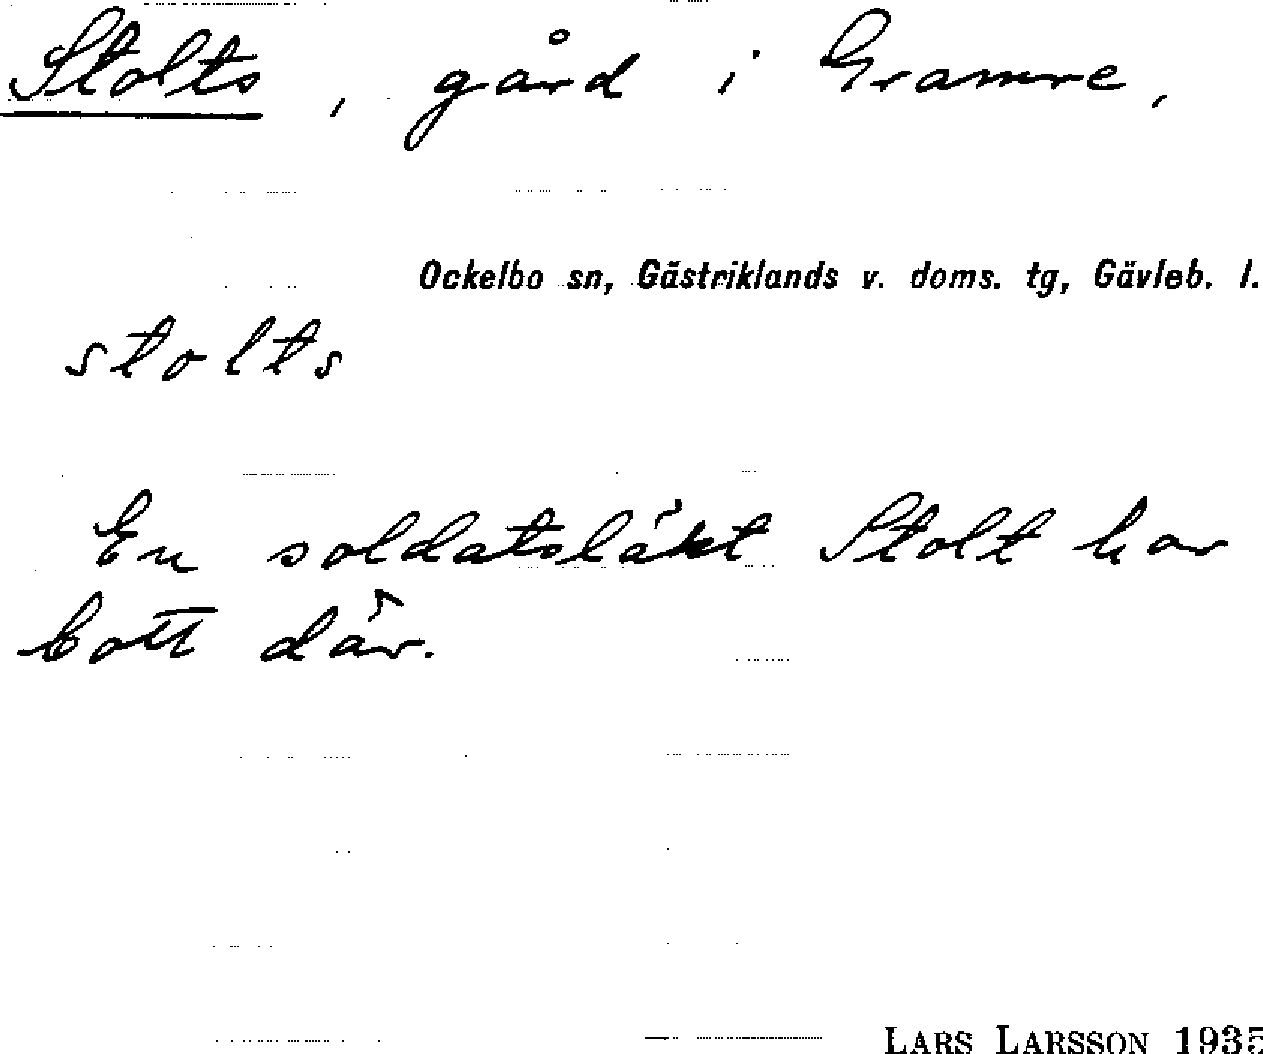 Stolts, gård i Gramre,
Ockelbo sn, Gästriklands v. doms. tg, Gävleb. l.
stolts
En soldatsläkt Stolt har
bott där.
LARS LARSSON 1935